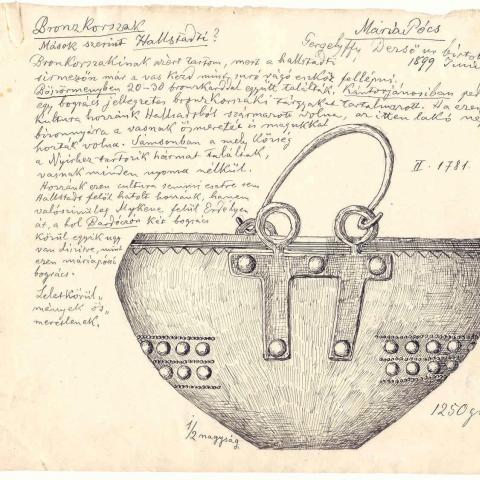 Bronzkorszak
Mások szerint Hallstadti?
Mária Pócs
Gergelyffy Derső ur birtok
1879
Bronzkorszakinak azért tartom, mert a hallstadti
sirmezőn már a vas kézd mint szuró vágó eszköz fellépni,
Böszörményben 20-30 bronzkarddal együtt találták, Kántorjánosiban ped
egy bogrács jellegzetes bronzkorszaki tárgyakat tartalmazott. Ha ezen
kultura hozzánk Hallstadtból származott volna, az itten lakó
bizonnyára a vasnak ösmeretét is magukkal
hozták volna. Sámsonban a mely község
a Nyirhez tartozik hármat találtak,
vasnak minden nyoma nélkül.
Hozzánk ezen cultura semmi esetre sem
Hallstadt felöl hatolt hozzánk, hanem
valószinüleg Mykene felöl Erdélyen
át, a hol Bárdóczon két bogrács
közül egyik ugy
van diszitve, mint
ezen máriapócsi
bogrács.
Leletkörül„
mények ös„
meretlenek.
II. 1781.
1250 gr
1/2 nagyság